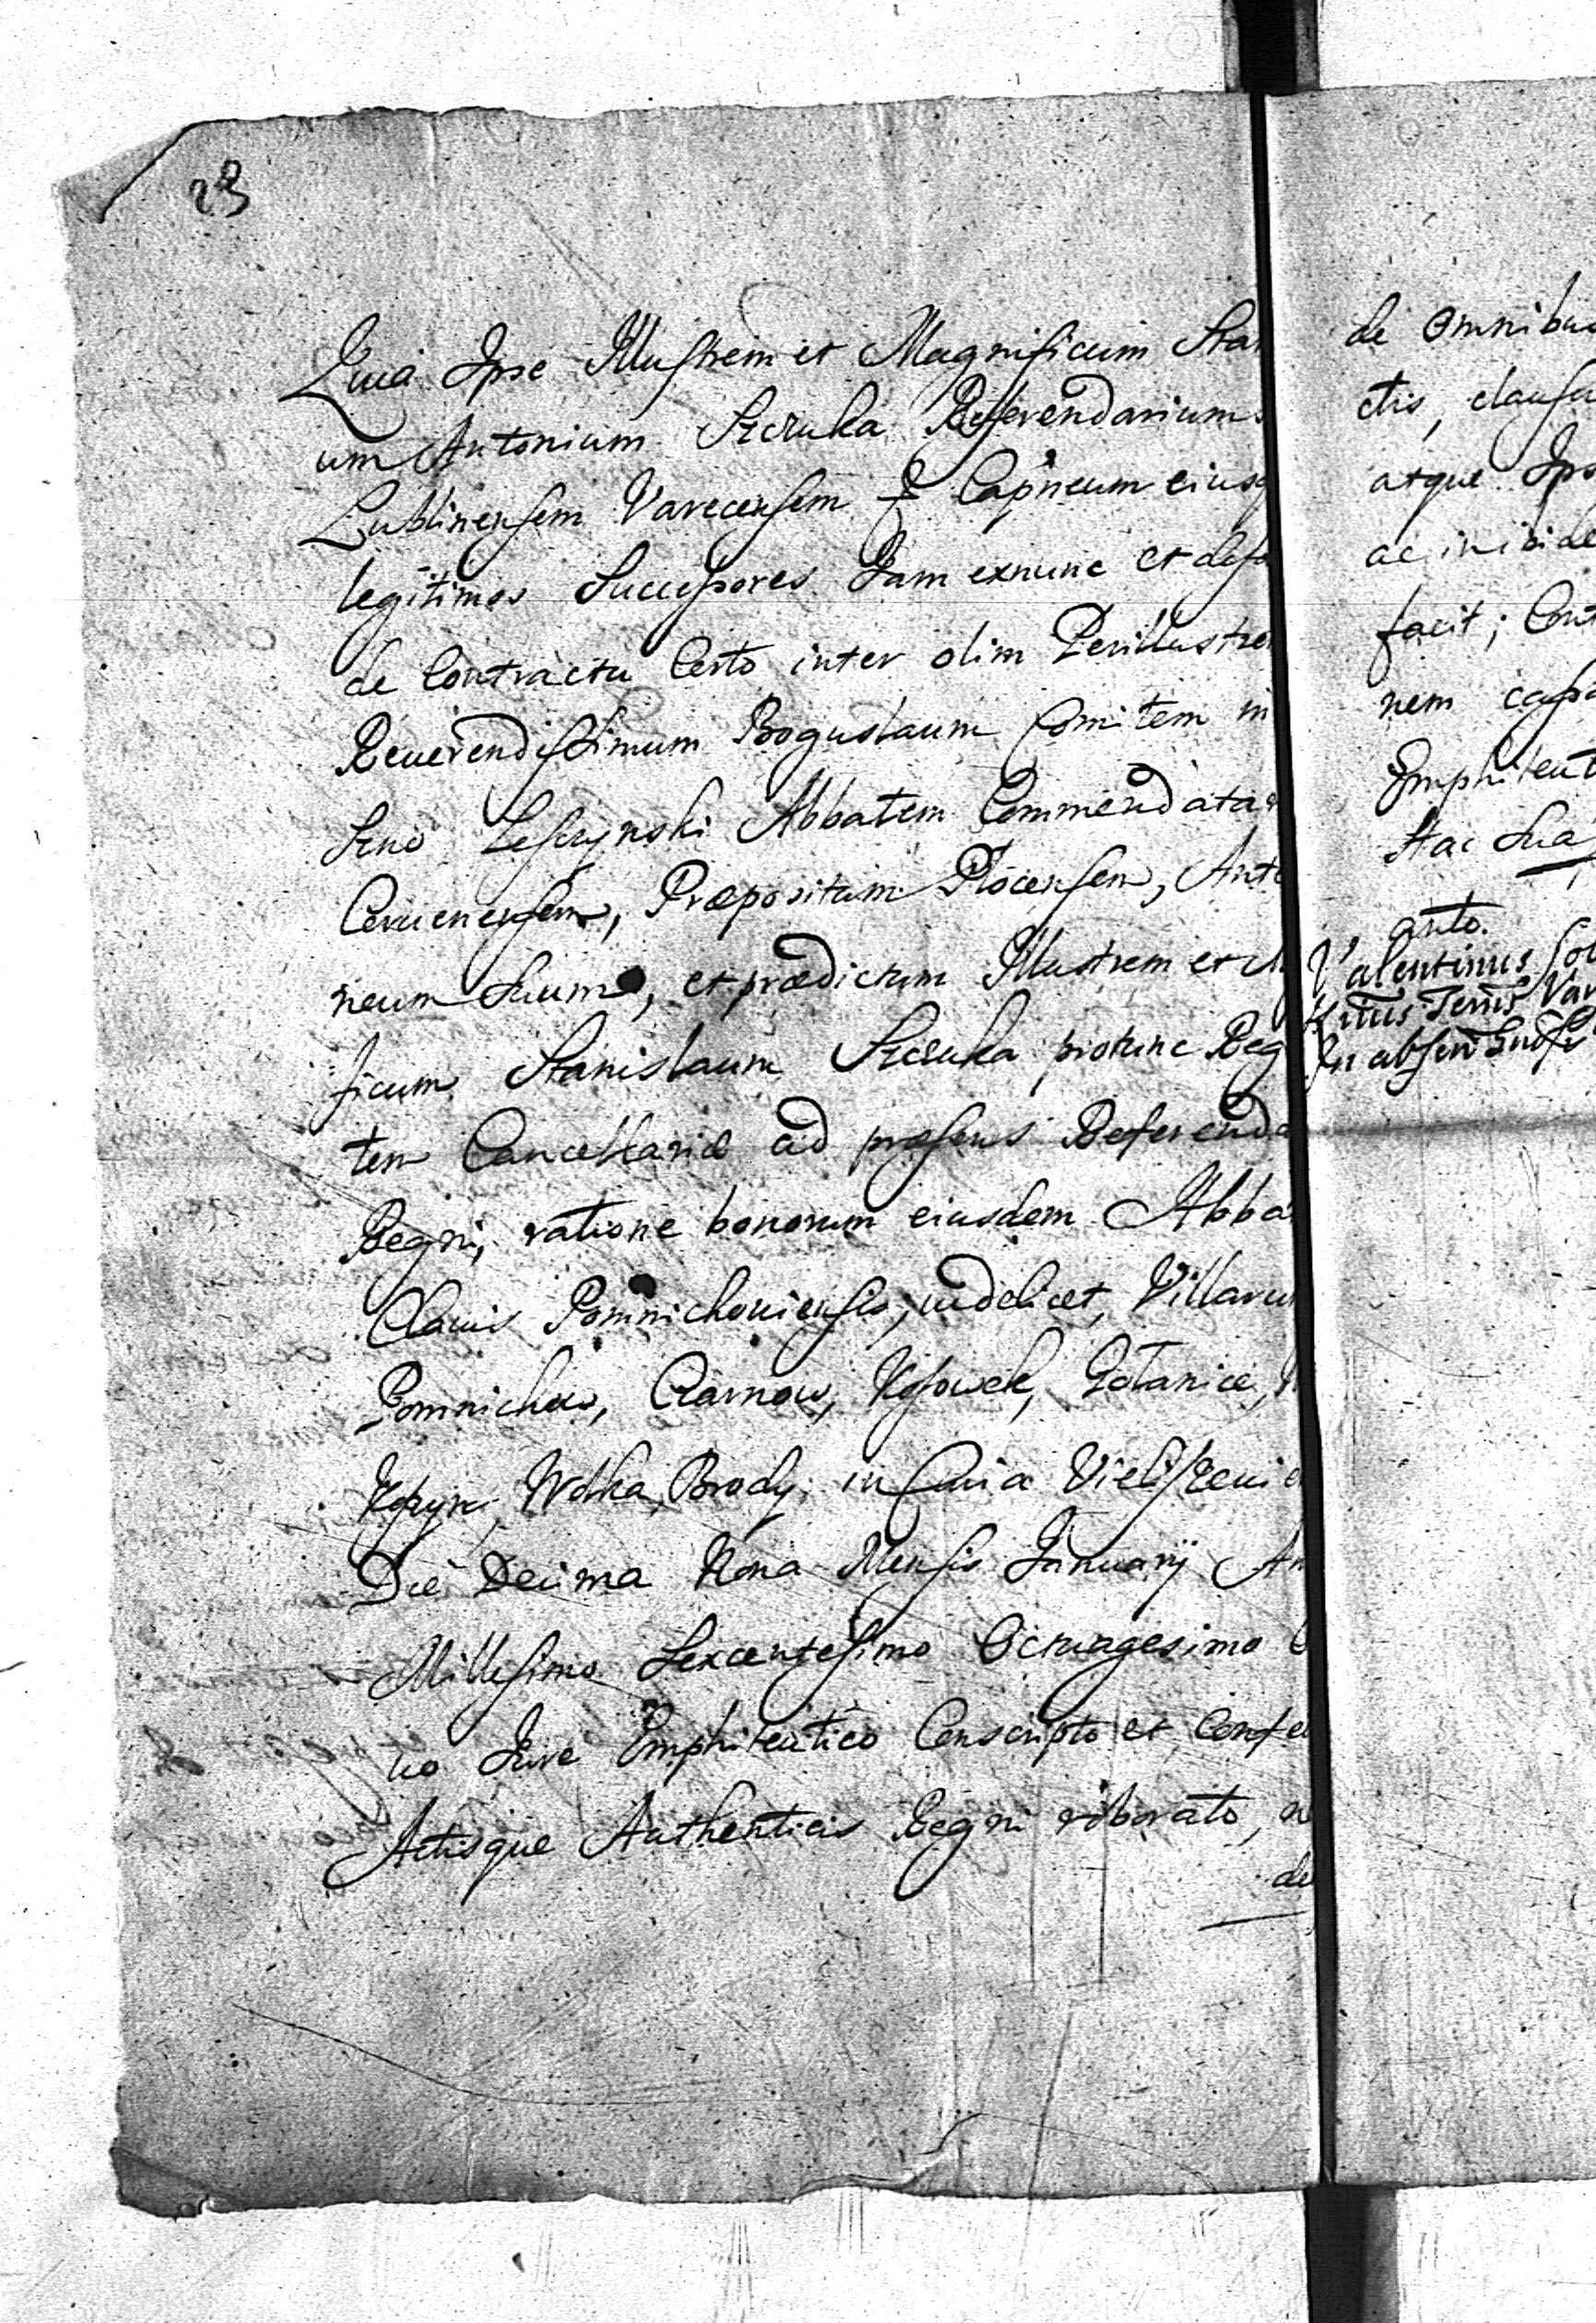 23
Quia Ipse Illustrem et Magnificum Sta
um Antonium Szczuka Referendarium
Lublinensem Varecensem & Capneum eiusq
legitimos Successores Iam exnunc et de
de Contractu Certo inter olim Perillustre
Reuerendissimum Boguslaum Comitem in
Leszno Leszczynski Abbatem Commendata
Ceruenensem, Præpositum Plocensem, Ante
neum Suum, et prædictum Illustrem et M
ficum Stanislaum Szczuka protunc Reg
tem Cancellariæ ad præsens Referenda
Regni, ratione bonorum eiusdem Abba
Clauis Pomnichouiensis, videlicet, Villaru
Pomnichow, Czarnow, Kosowek,
Wolka, Brody, in Curia
Die Decima Nona Mensis Januarij An
Millesimo Sexcentesimo Octuagesimo
uo Iure Emphiteutico Conscripto et Confe
Actisque Authenticis Regni roborato, n
de
de omnibus
ctis, clausu
atque Ips
ac inibide
facit; Cont
nem cassa
Emphiteut
Hac Sua
anto.
Valentinus
In absen